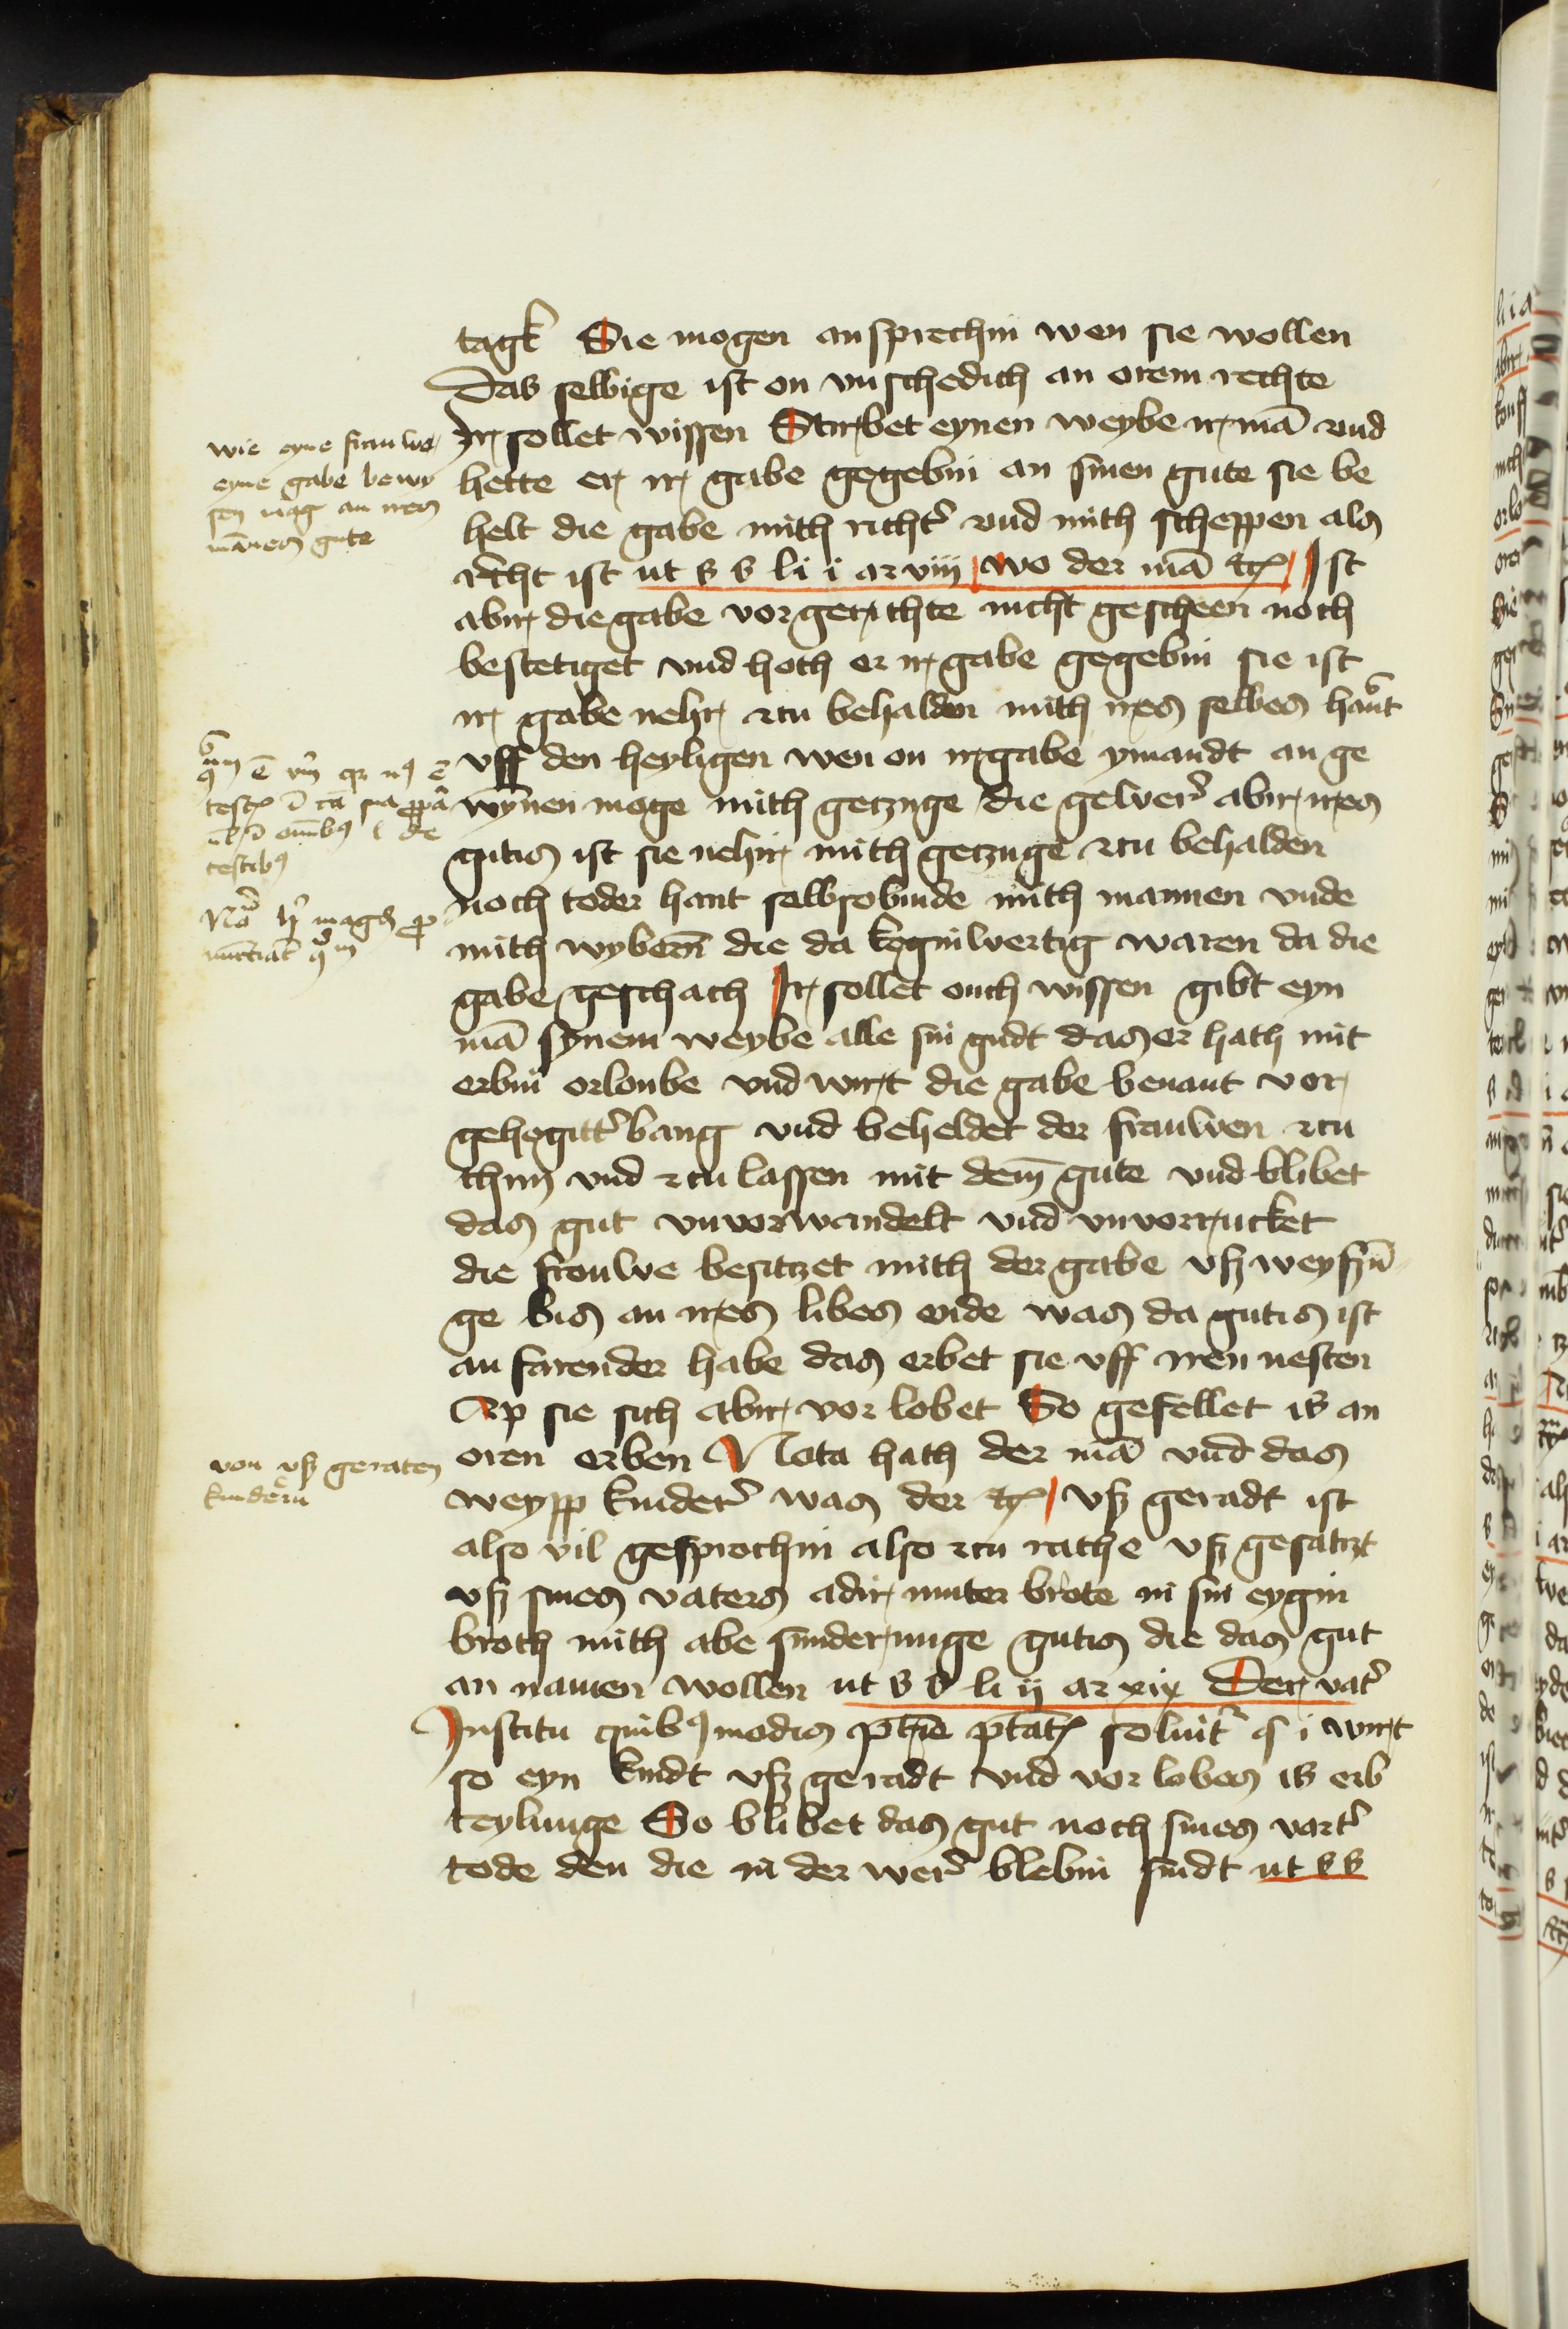 tagk Sie mogen ansprechin wen sie wollen
Das selbige ist on vnschedich an orem rechte
Ir sollet wissen Stirbet eynen weybe ir mā vnd
hette er ir gabe gegebin an sinen gute sie be
helt die gabe mith richt' vnd mith scheppen als
recht ist ut ß ß li i ar viij wo der mā etc Ist
abir die gabe vor gerichte nicht gescheen noch
bestetiget vnd hoth er ir gabe gegebin sie ist
ir gabe nehr zcu behalden mith ires selbes hant
vff den heyligen wen on ir gabe ymandt an ge
wynen moge mith getzuge die gewer' abir ires
gutis ist sie nehir mith getzuge zcu behalden
noch toder hant selbsobinde mith mannen vnde
mith wyberñ die da keginwertig waren da die
gabe geschach Ir sollet ouch wissen gibt eyn
mā synem weybe alle sin gudt das er hath mit
erbin orloube vnd wirt die gabe benant vor
gehegitt' bang vnd beheldet der frauwen zcu
thun vnd zcu lassen mit dem̄ gute vnd blibet
das gut vnvorwandelt vnd vnvorrucket
die frouwe besitzet mith der gabe vß weyszū
ge bis an ires libes ende was da gutis ist
an farender habe das erbet sie vff iren nesten
Ap sie sich abir vor lobet So gefellet is an
oren erben Nota hath der mā vnd das
weypp kinder' was der etc vß geradt ist
also vil gesprochin also zcu rathe vß gesatzt
vß sines vaters adir muter brote in sin eygin
broth mith abe sunderunge gutis die das gut
an namen wollen ut ß ß li ij ar xix Der vat'
Institu quibꝯ modis pt̄rie ptāt soluit' § i wirt
so eyn kindt vß geradt vnd vor lobes is erb
teylunge So blibet das gut noch sines vatt'
tode den die in der wer' blebin sindt ut ß ß
wie eyne frauwe
eyne gabe bewy
sen mag an ires
mānes gute
testibꝯ
von vß geraten
kinderñ